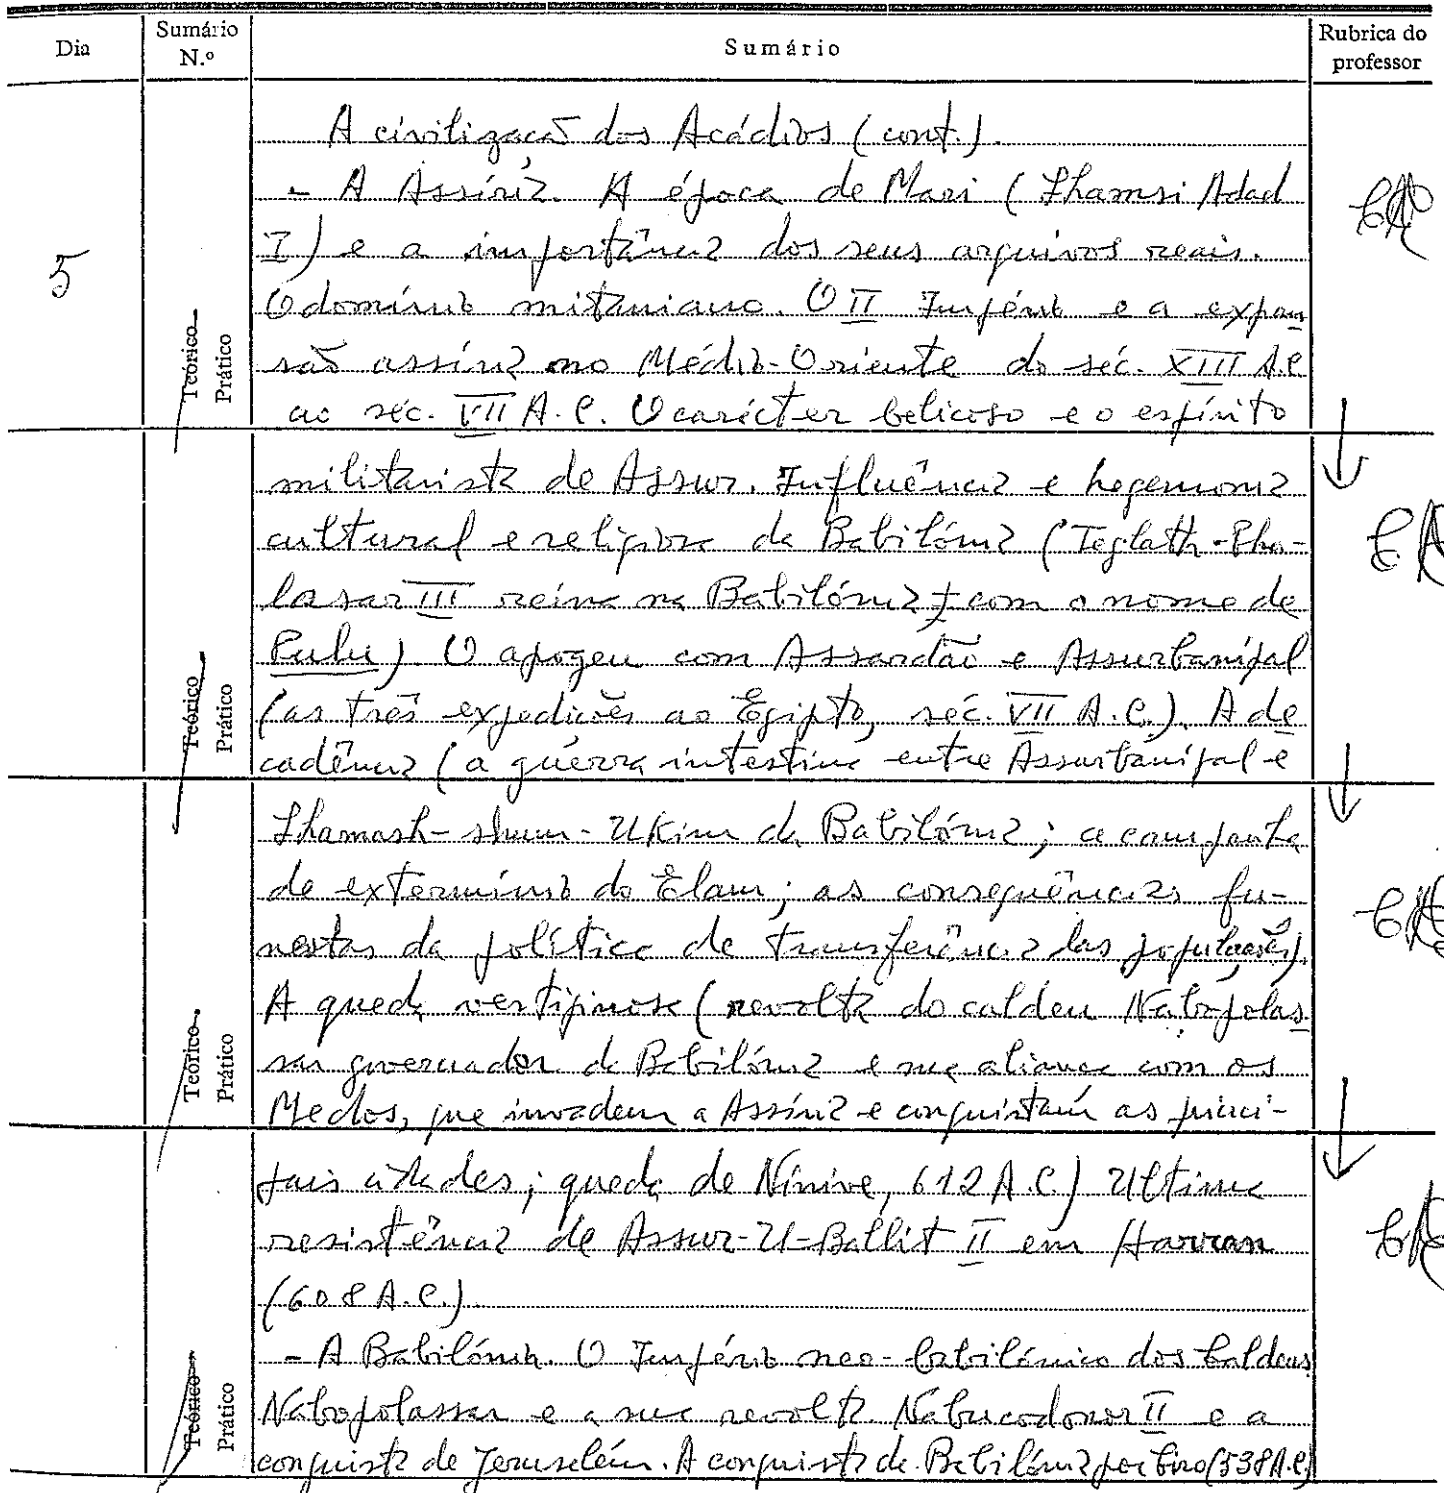 Dia
Sumário N.º
Sumário
Rubrica do professor
A civilização dos Acádios (cont.).
- A Assíria. A época de Mari (Shamsi Adad
I) e a importância dos seus arquivos reais.
5
O domínio mitaniano. O II Império e a expan
são assíria no Médio-Oriente do séc. XIII A.C
ao séc. VII A.C. O carácter belicoso e o espírito
Teórico
Prático
militarista de Assur. Influência e hegemonia
cultural e religiosa da Babilónia (Teglath-Pha-
lasar III reina na Babilónia com o nome de
Pulu) O apogeu com Assardão e Assurbanipal
(as três expedições ao Egipto, séc. VII A.C.). A de
cadência (a guerra intestina entre Assurbanipal e
Teórico
Prático
Shamash-shum-Ukim da Babilónia; a campanha
de extermínio do Elam; as consequências fu-
nestas da política de transferência das populações).
A queda vertiginosa (revolta do caldeu Nabopolas
sar governador da Babilónia e sua aliança com os
Medos, que invadem a Assíria e conquistam as princi-
Teórico
Prático
pais cidades; queda de Nínive, 612 A.C.) Ultima
resistência de Assur-U-Ballit II em Harran
(608 A.C.).
- A Babilónia. O Império neo-babilónico dos Caldeus
Nabopolassar e a sua revolta. Nabucodonor II e a
conquista de Jerusalém. A conquista de Babilónia por Ciro (538 A.C.)
Teórico
Prático